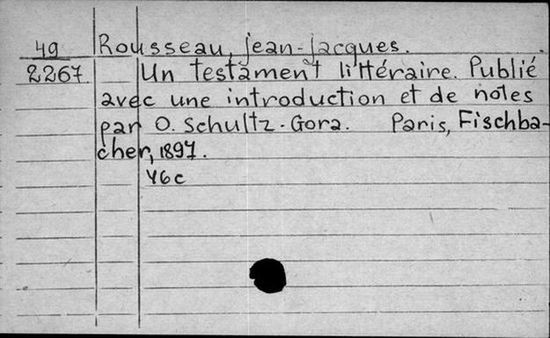 49 Rousseau, jean-jacques.
2267 Un testament littéraire. Publié
avec une introduction et de notes
par O. Schultz-Gora. Paris, Fischba-
cher, 1897.
46c